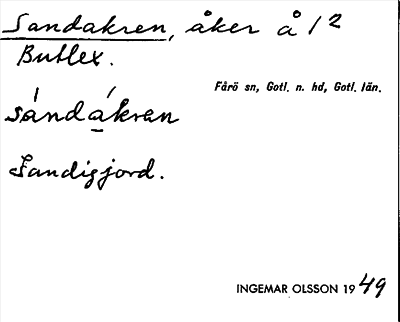 Sandakren, åker å 1²
Butlex.
Fårö sn, Gotl. n. hd, Gotl. län.
sándákran
Sandigjord.
INGEMAR OLSSON 1949